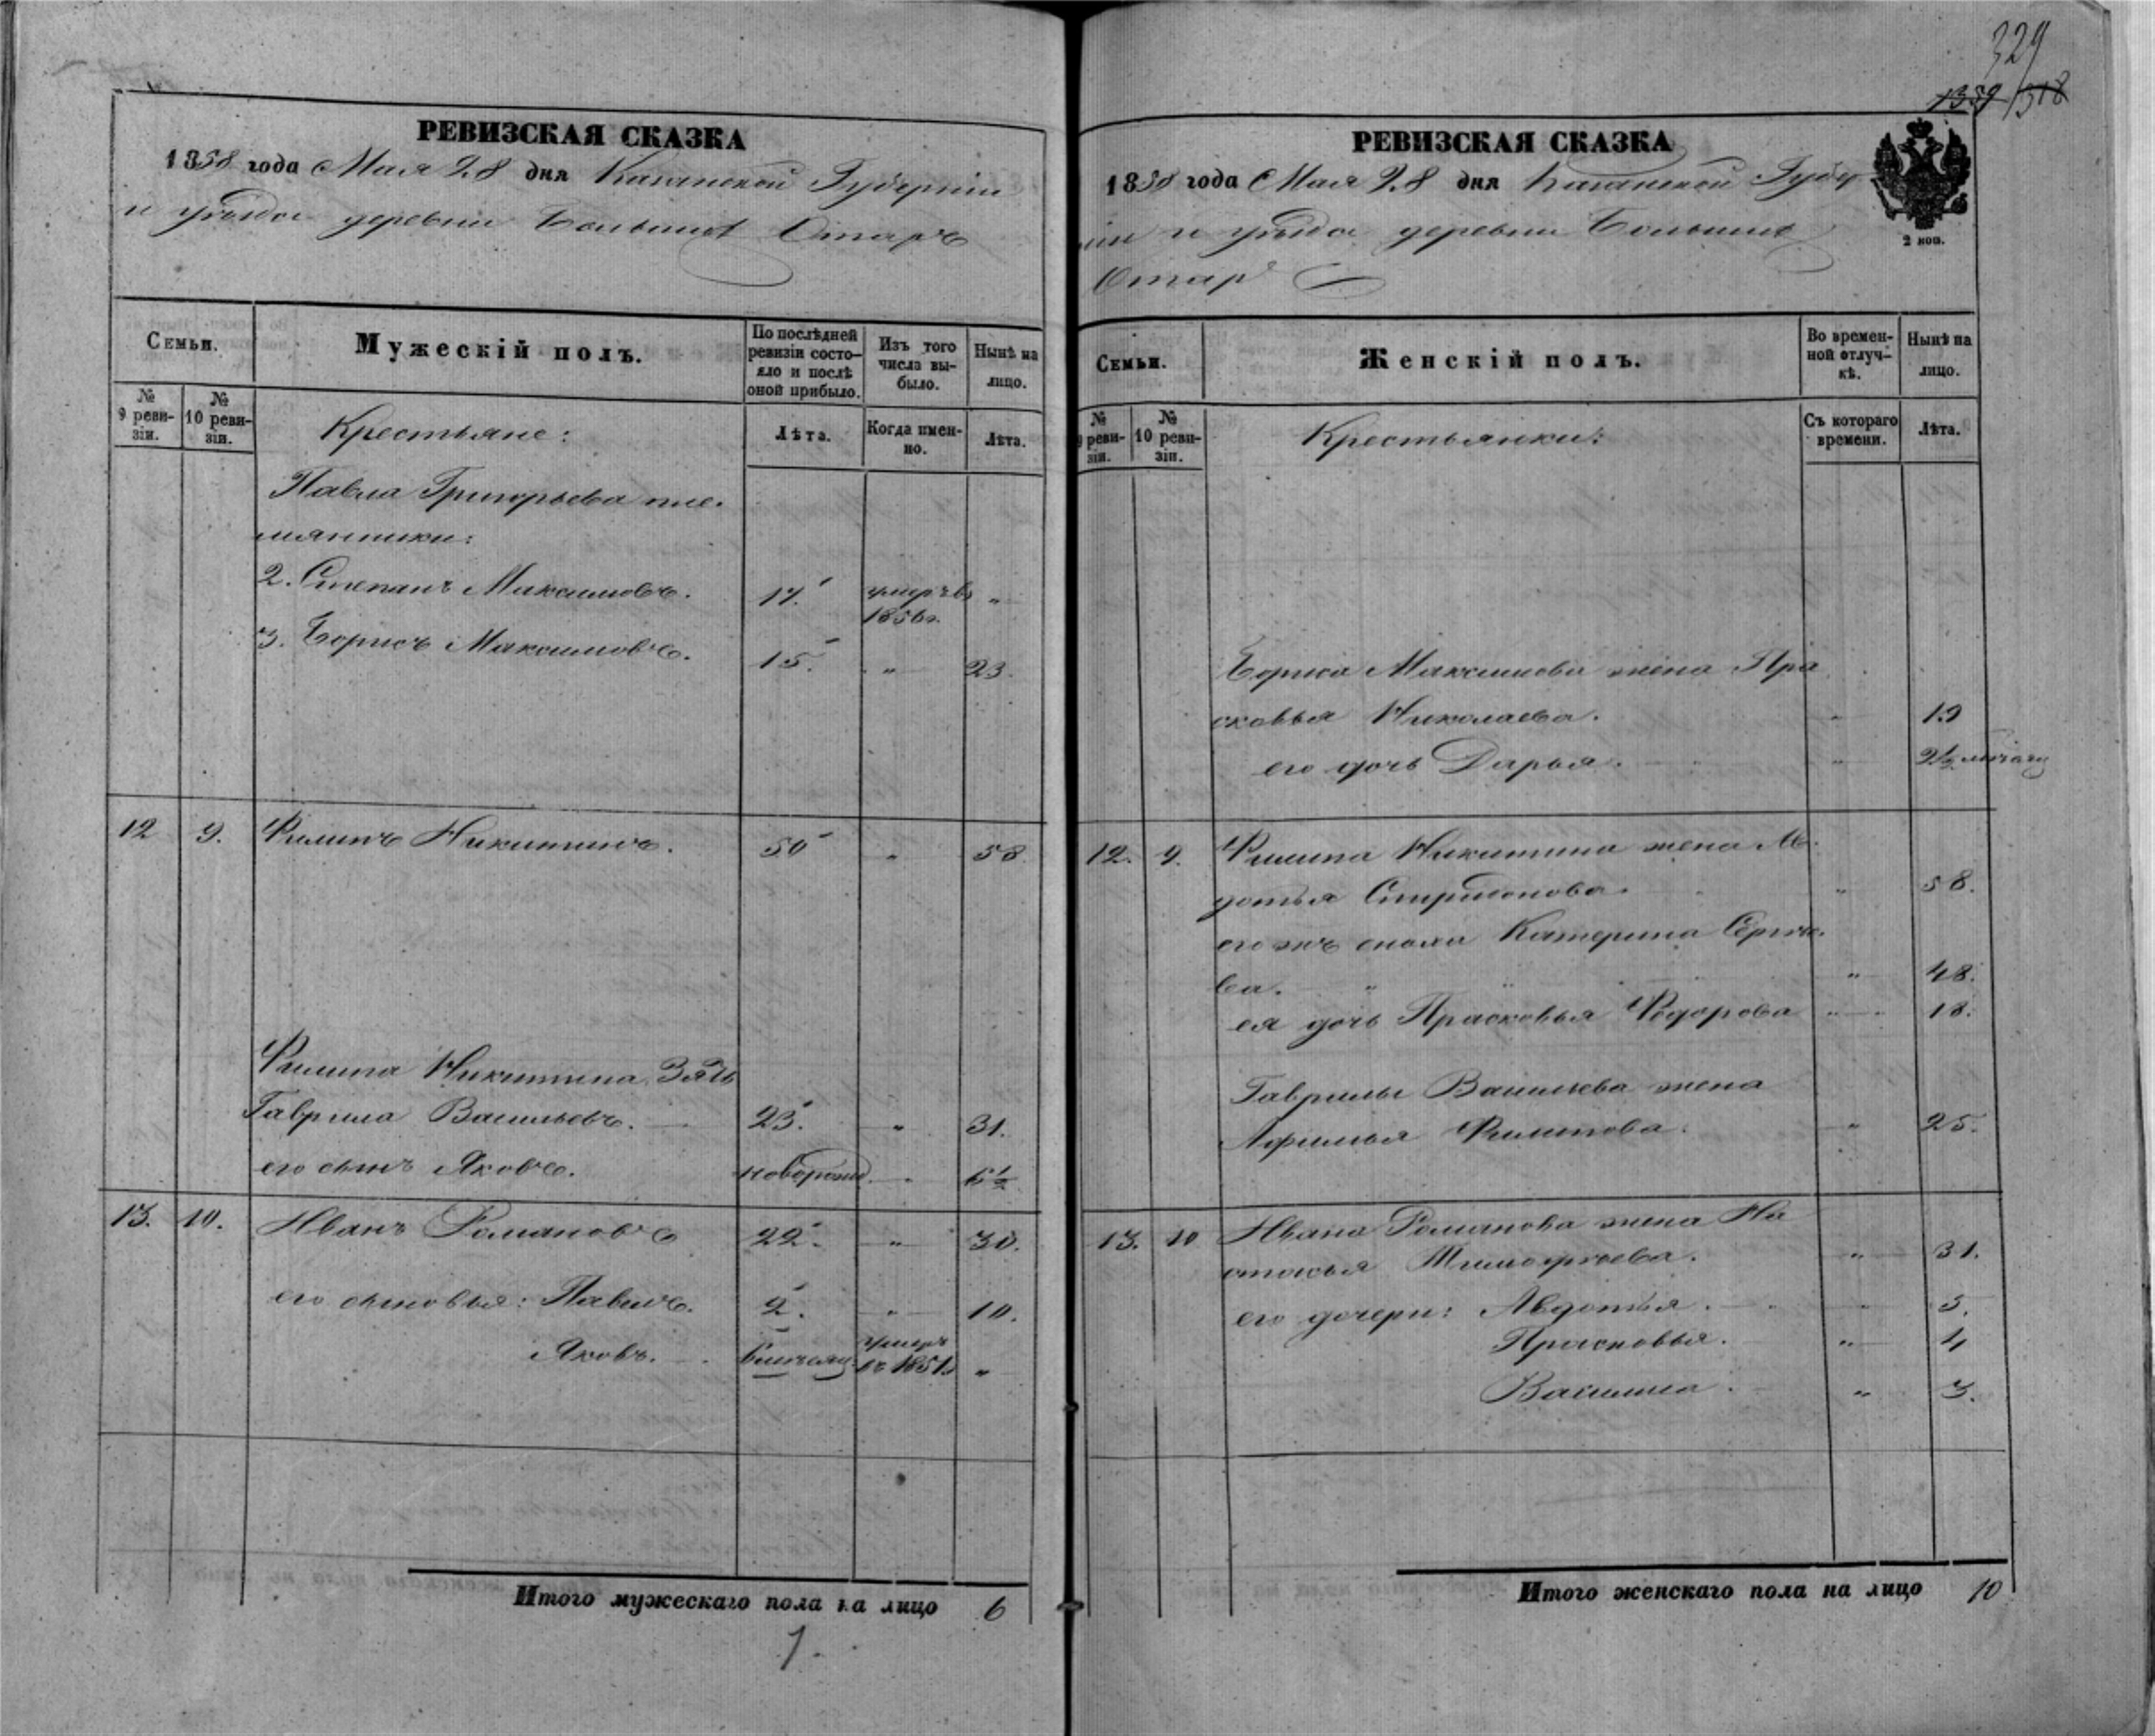 329
1359/318
РЕВИЗСКАЯ СКАЗКА
1858 года Мая 28 дня Казанской Губерніи
и уѣзда деревни Большихъ Отаръ
Семьи.
Мужескій полъ.
По послѣдней ревизіи состояло и послѣ оной прибыло.
Изъ того числа выбыло.
Нынѣ на лицо.
№ 9 ревизіи.
№ 10 ревизіи.
Лѣта.
Когда именно.
Лѣта.
Крестьяне:
Павла Григорьева пле-
мянники:
2. Степанъ Максимовъ. 17. умеръ въ 1856 г. "
3. Борисъ Максимовъ. 15. " 23.
12 9. Филипъ Никитинъ. 50 " 58
Филипа Никитина Зять
Гаврила Васильевъ. 23. " 31.
его сынъ Яковъ. новорожд. " 6½
13. 10. Иванъ Романовъ 22. " 30.
его сыновья: Павелъ. 2. " 10.
Яковъ. 6 мѣсяц. умеръ въ 1851 г. "
Итого мужескаго пола на лицо 6
1.
РЕВИЗСКАЯ СКАЗКА
1858 года Мая 28 дня Казанской Губер
ніи и уѣзда деревни Большихъ
Отаръ
2 коп.
Семьи.
Женскій полъ.
Во временной отлучкѣ.
Нынѣ на лицо.
№ 9 ревизіи.
№ 10 ревизіи.
Съ котораго времени.
Лѣта.
Крестьянки:
Бориса Максимова жена Пра
сковья Николаева. " 19
его дочь Дарья. " 2½ мѣсяц
12. 9. Филипа Никитина жена Ав-
дотья Спиридонова. " 58.
его жъ сноха Катерина Сергѣе-
ва. " 48.
ея дочь Прасковья Федорова " 18.
Гаврилы Васильева жена
Афимья Филипова. " 25.
13. 10 Ивана Романова жена На
стасья Тимофѣева. " 31.
его дочери: Авдотья. " 5.
Прасковья. " 4
Василиса. " 3.
Итого женскаго пола на лицо 10